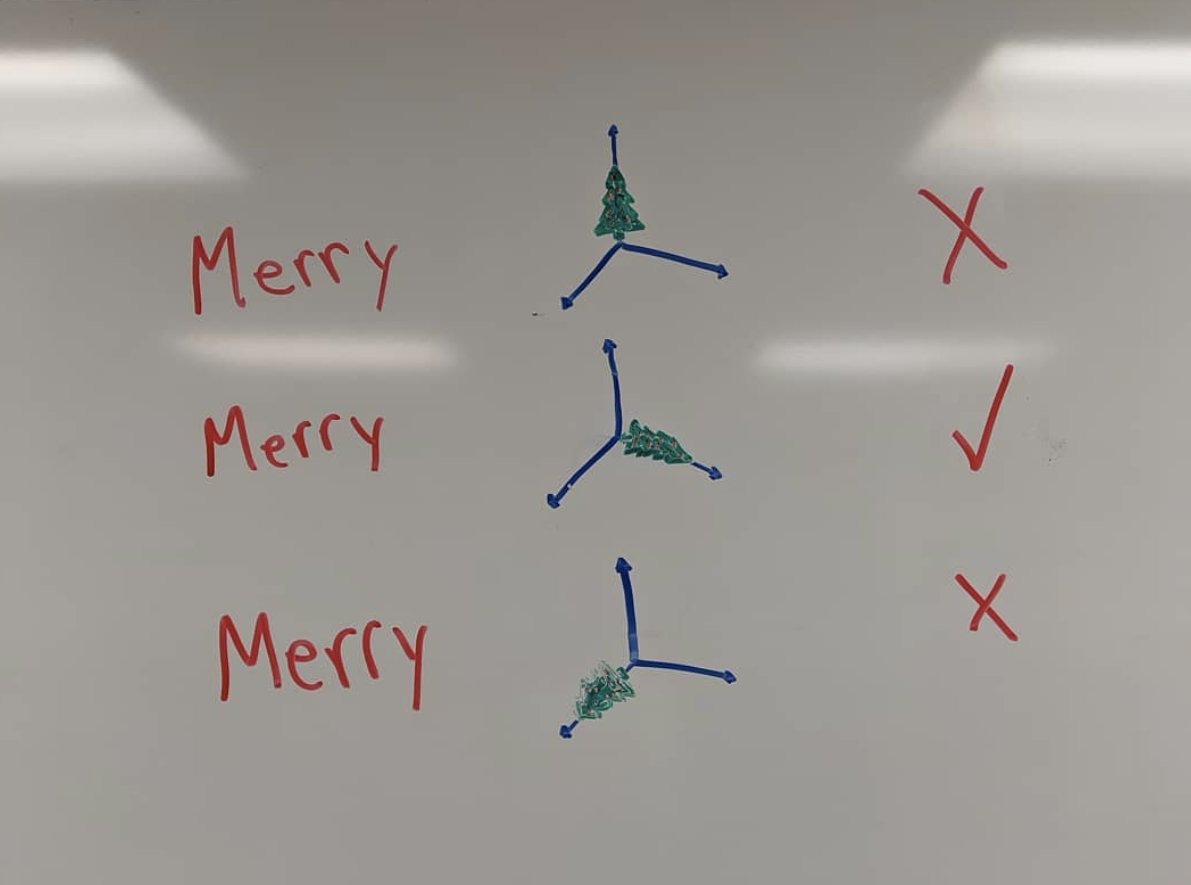 Merry X
Merry ✓
Merry X